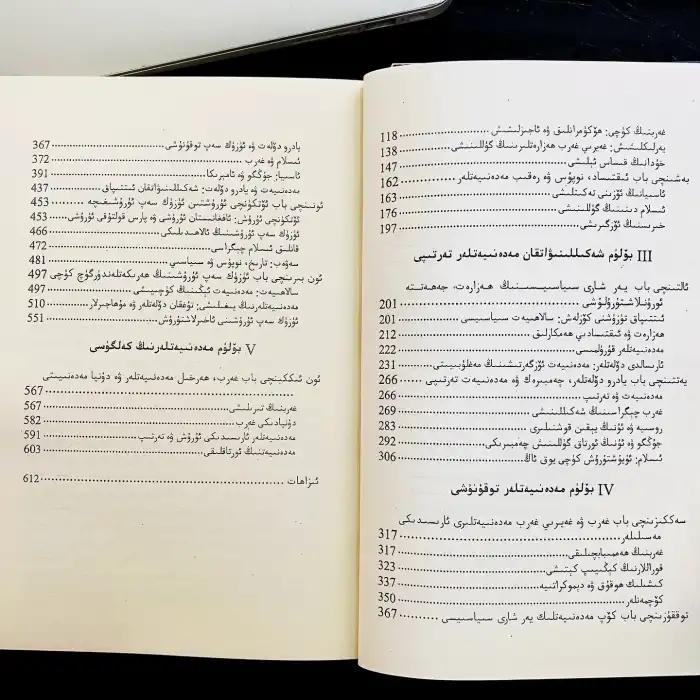 غەربنىڭ كۈچى: ھۆكۈمرانلىق ۋە ئاجىزلىشىش 118
يەرلىكلىشىش: غەيرىي غەرب ھەزارەتلىرىنىڭ گۈللىنىشى 138
خۇدانىڭ قىساس ئېلىشى 147
بەشىنچى باب ئىقتىساد، نوپۇس ۋە رەقىب مەدەنىيەتلەر 162
ئاسىيانىڭ ئۆزىنى تەكىتلىشى 163
ئىسلام دىنىنىڭ گۈللىنىشى 176
خىرىسنىڭ ئۆزگىرىشى 197
III بۆلۈم شەكىللىنىۋاتقان مەدەنىيەتلەر تەرتىپى
ئالتىنچى باب يەر شارى سىياسىيسىنىڭ ھەزارەت، جەھەتتە
ئورۇنلاشتۇرۇلۇشى 201
ئىتتىپاق تۇزۇشنى كۆزلەش: سالاھىيەت سىياسىيسى 201
ھەزارەت ۋە ئىقتىسادىي ھەمكارلىق 212
مەدەنىيەتلەر قۇرۇلمىسى 222
ئارسالدى دۆلەتلەر: مەدەنىيەت ئۆزگەرتىشنىڭ مەغلۇبىيىتى 231
يەتتىنچى باب يادرو دۆلەتلەر، چەمبىرەك ۋە مەدەنىيەت تەرتىپى 266
مەدەنىيەت ۋە تەرتىپ 266
غەرب چېگراسىنىڭ شەكىللىنىشى 269
روسىيە ۋە ئۇنىڭ يېقىن قوشنىلىرى 283
جۇڭگو ۋە ئۇنىڭ ئورتاق گۈللىنىش چەمبىرىكى 292
ئىسلام: ئۇيۇشتۇرۇش كۈچى يوق ئاڭ 306
IV بۆلۈم مەدەنىيەتلەر توقۇنۇشى
سەككىزىنچى باب غەرب ۋە غەيرىي غەرب مەدەنىيەتلىرى ئارىسىدىكى
مەسىلىلەر 317
غەربنىڭ ھەممىبابچىلىقى 317
قوراللارنىڭ كېڭىيىپ كېتىشى 323
كىشىلىك ھوقۇق ۋە دېموكراتىيە 337
كۆچمەنلەر 350
توققۇزىنچى باب كۆپ مەدەنىيەتلىك يەر شارى سىياسىيسى 367
يادرو دۆلەت ۋە ئۈزۈك سەپ توقۇنۇشى 367
ئىسلام ۋە غەرب 372
ئاسىيا: جۇڭگو ۋە ئامېرىكا 391
مەدەنىيەت ۋە يادرو دۆلەت: شەكىللىنىۋاتقان ئىتتىپاق 437
ئونىنچى باب ئۆتكۈنچى ئۇرۇشتىن ئۈزۈك سەپ ئۇرۇشىغىچە 453
ئۆتكۈنچى ئۇرۇش: ئافغانىستان ئۇرۇشى ۋە پارس قولتۇقى ئۇرۇشى 453
ئۈزۈك سەپ ئۇرۇشىنىڭ ئالاھىدىلىكى 466
قانلىق ئىسلام چېگراسى 472
سەۋەب: تارىخ، نوپۇس ۋە سىياسىي 481
ئون بىرىنچى باب ئۈزۈك سەپ ئۇرۇشىنىڭ ھەرىكەتلەندۈرگۈچ كۈچى 497
سالاھىيەت: مەدەنىيەت ئېڭىنىڭ كۈچىيىشى 497
مەدەنىيەتلەرنىڭ يىغىلىشى: تۇغقان دۆلەتلەر ۋە مۇھاجىرلار 510
ئۈزۈك سەپ ئۇرۇشىنى ئاخىرلاشتۇرۇش 551
V بۆلۈم مەدەنىيەتلەرنىڭ كەلگۈسى
ئون ئىككىنچى باب غەرب، ھەرخىل مەدەنىيەتلەر ۋە دۇنيا مەدەنىيىتى
567
غەربنىڭ تىرىلىشى 567
دۇنيادىكى غەرب 582
مەدەنىيەتلەر ئارىسىدىكى ئۇرۇش ۋە تەرتىپ 591
مەدەنىيەتنىڭ ئورتاقلىقى 603
ئىزاھات 612